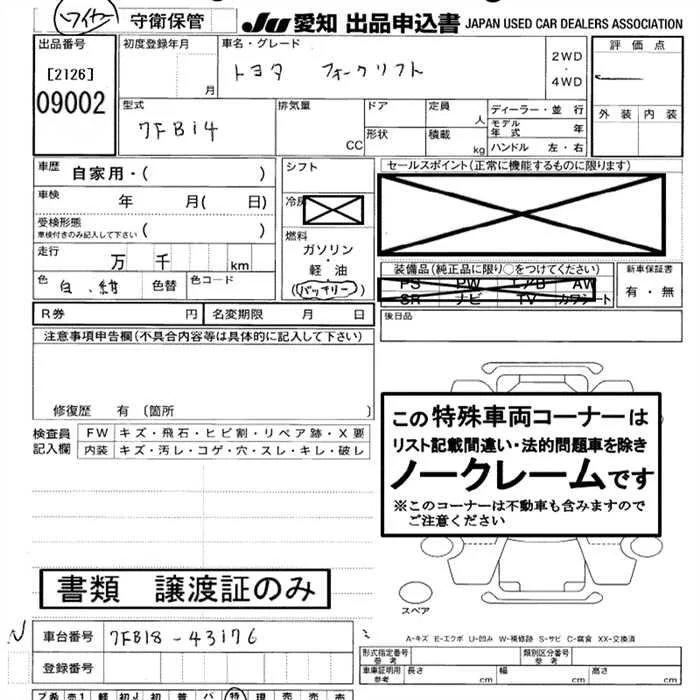 ワイヤー 守衛保管
JU 愛知 出品申込書 JAPAN USED CAR DEALERS ASSOCIATION
出品番号
[2126]
09002
初度登録年月
月
車名・グレード
トヨタ フォークリフト
2WD
・
4WD
評価点
外装 内装
型式
7FB14
排気量
CC
ドア
形状
定員
人
積載
kg
ディーラー・並行
モデル年式 年
ハンドル 左・右
車歴 自家用・( )
車検 年 月( 日)
受検形態
車検付きのみ記入して下さい ( )
走行 万 千 km
色 白、紺 色替 色コード
シフト
冷房
燃料
ガソリン
・
軽・油
・
(バッテリー)
セールスポイント(正常に機能するものに限ります)
装備品(純正品に限り○をつけてください)
PS PW エアB AW
SR ナビ TV カワシート
新車保証書
有・無
R券 円 名変期限 月 日
後日品
注意事項申告欄(不具合内容等は具体的に記入して下さい)
修復歴 有〔箇所 〕
検査員
記入欄
FW キズ・飛石・ヒビ割・リペア跡・X要
内装 キズ・汚レ・コゲ・穴・スレ・キレ・破レ
この特殊車両コーナーは
リスト記載間違い・法的問題車を除き
ノークレームです
※このコーナーは不動車も含みますので
ご注意ください
書類 譲渡証のみ
スペア
A-キズ E-エクボ U-凹み W-補修跡 S-サビ C-腐食 XX-交換済
車台番号 7FB18-43176
登録番号
形式指定番号
参考
類別区分番号
参考
車庫証明用
参考
長さ 幅 高さ